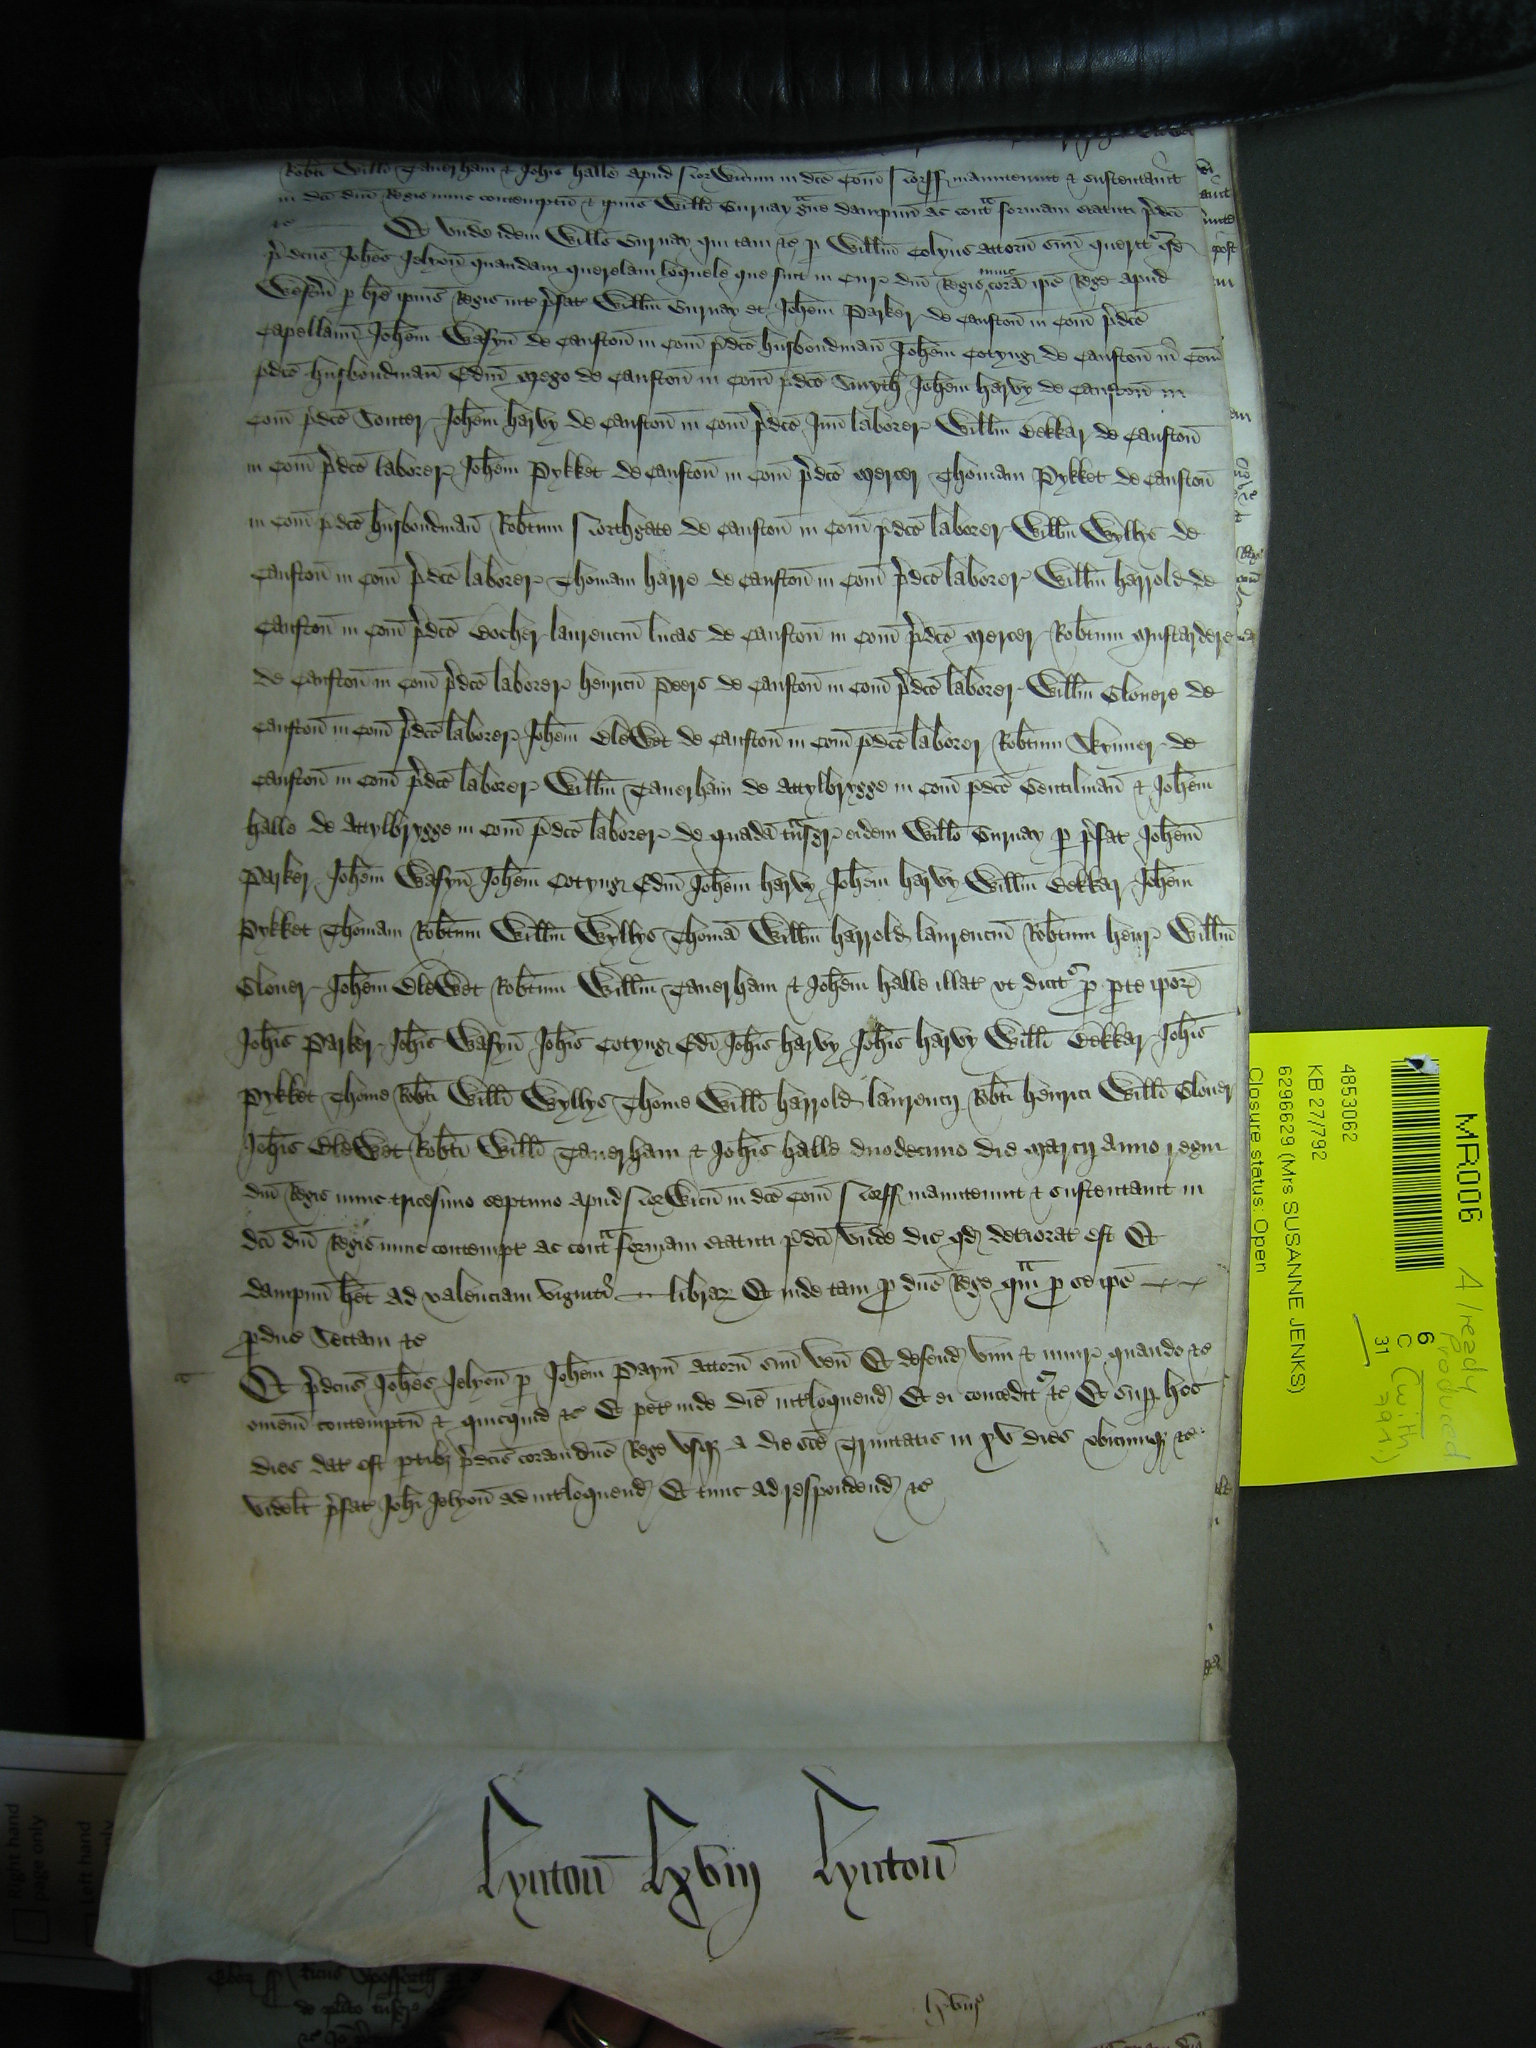 Robti Willi Tauerham & Johis Halle apud Norwicum in dco Com Norff manutenuit & sustentauit
in dci dni Regis nunc contemptu & ipius Willi Gurnay gue dampnu ac contra formam statuti pdci
&c Et unde idem Wills Gurnay qui tam &c p Willm Colyns attorn suu querit qd
pdcus Johes Jelyon quandam querelam loquele que fuit in Cur dni Regis nunc cora ipo Rege apud
Westm p bre ipius Regis int pfat Willm Gurnay et Johem Parker de Causton in Com pdco
Capellanu Johem Wasyn de Causton in Com pdco husbondman Johem Cotyng de Causton in Com
pdco husbondman Edm Mego de Causton in Com pdco Smyth Johem Harvy de Causton in
Com pdco Souter Johem Harvy de Causton in Com pdco Jun laborer Willm Bekkar de Causton
in Com pdco laborer Johem Pykket de Causton in Com pdco Mercer Thomam Pykket de Causton
in Com pdco husbondman Robtum Northgate de Causton in Com pdco laborer Willm Wyllys de
Causton in Com pdco laborer Thomam Harre de Causton in Com pdco laborer Willm Harrold de
Causton in Com pdco Bocher laurenciu lucas de Causton in Com pdco Mercer Robtum Mustardere
de Causton in Com pdco laborer henricu Peers de Causton in Com pdco laborer Willm Glouere de
Causton in Com pdco laborer Johem Blewet de Causton in Com pdco laborer Robtum Skynner de
Causton in Com pdco laborer Willm Tauerham de Attylbrygge in Com pdco Gentilman & Johem
Halle de Attylbrygge in Com pdco laborer de quada tnsgr eidem Willo Gurnay p pfat Johem
Parker Johem Wasyn Johem Cotyng Edm Johem Harvy Johem Harvy Willm Bekkar Johem
Pykket Thomam Robtum Willm Wyllys Thoma Willm Harrold laurenciu Robtum Henr Willm
Glouer Johem Blewet Robtum Willm Tauerham & Johem Halle illat ut dicit p pte ipor
Johis Parker Johis Wasyn Johis Cotyng Edi Johis Harvy Johis Harvy Willi Bekkar Johis
Pykket Thome Robti Willi Wyllys Thome Willi Harrold laurencij Robti Henrici Willi Glouer
Johis Blewet Robti Willi Tauerham & Johis Halle duodecimo die Marcij anno regni
dni Regis nunc tricesimo septimo apud Norwicu in dco Com Norff manutenuit & sustentauit in
dci dni Regis nunc contempt ac contra formam statuti pdci Unde dic qd deteriorat est Et
dampnu het ad valenciam viginti librar Et inde tam p dno Rege qm p se ipo
pduc Sectam &c
Et pdcus Johes Jelyon p Johem Payn attorn suu ven Et defend vim & iniur quando &c
omem contemptu & quicquid &c Et pet inde die intloquend Et ei concedit &c Et sup hoc
dies dat est ptibz pdcis coram dno Rege usqz a die sce Trinitatis in xv dies ubicumqz &c
videlt pfat Johi Jelyon ad intloquend Et tunc ad respondend &c
Lynton Lxviij Lynton
MR006
4853062
KB 27/792
6296629 (Mrs SUSANNE JENKS)
Closure status: Open
6
C
31
Already
produced
(with
291.)
Right hand
page only
Left hand